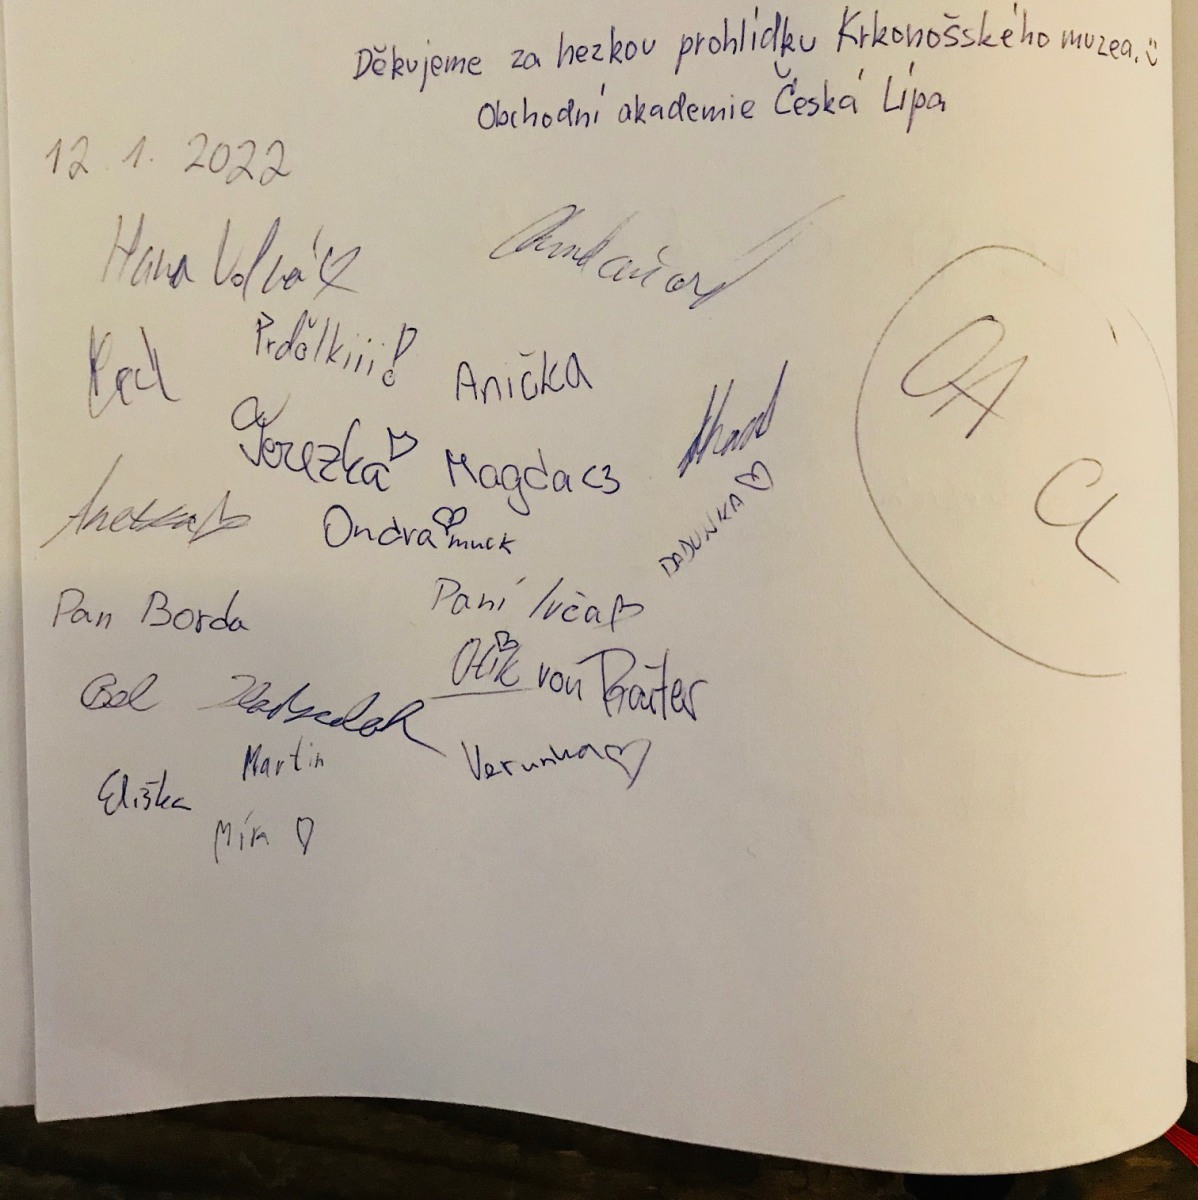 Děkujeme za hezkou prohlídku Krkonošského muzea.
Obchodní akademie Česká Lípa
12. 1. 2022
Hana
Prdólkiii!
Anička
Terezka
Magda <3
Anetka
Ondra muck
DADUNKA
OA
CL
Pan Borda
Paní Ivča
Otík von
Martin
Verunka
Eliška
Míra